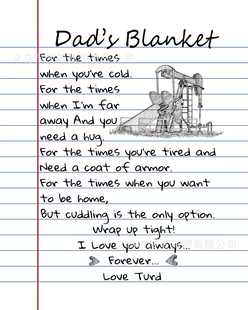 Dad's Blanket
For the times
when you're cold.
For the times
when I'm far
away And you
need a hug.
For the times you're tired and
Need a coat of armor.
For the times when you want
to be home,
But cuddling is the only option.
Wrap up tight!
I Love you always...
Forever...
Love Turd